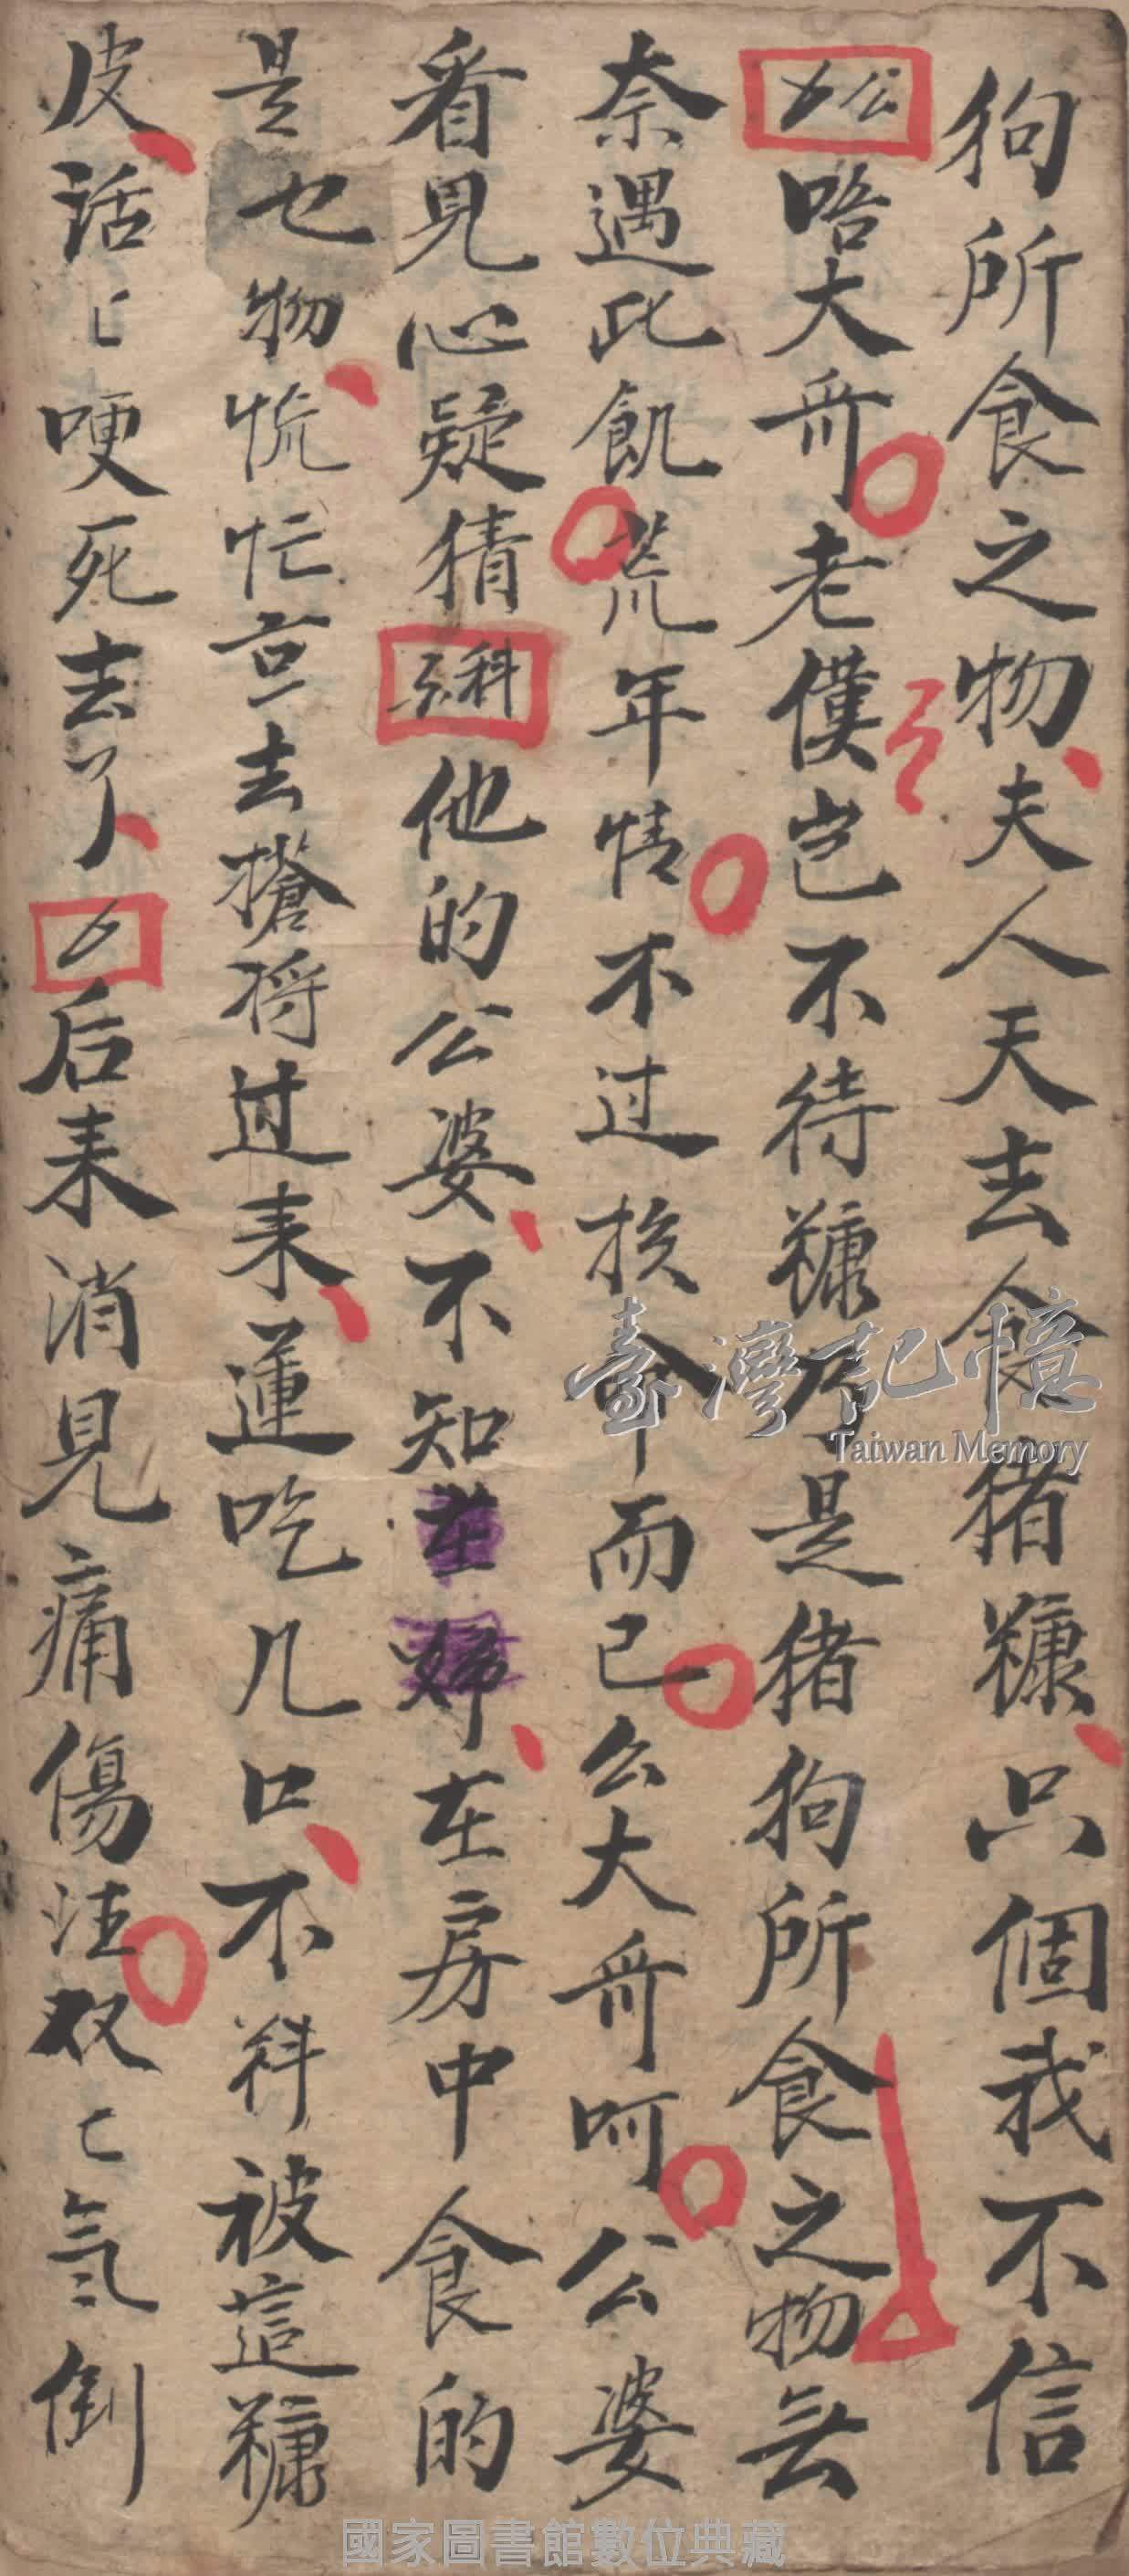 狗所食之物夫人天去食猪糠只個我不信
公唔大哥老僕岂不待糠乃是猪狗所食之物无
奈遇此飢荒年情不过挨命而已公大哥呵公婆
看見心疑猜科他的公婆不知在婦在房中食的
是乜物慌忙亘去搶将过来連吃几口不料被這糠
皮活匕哽死去了后来消見痛傷注双匕氣倒
臺灣記憶
Taiwan Memory
國家圖書館數位典藏